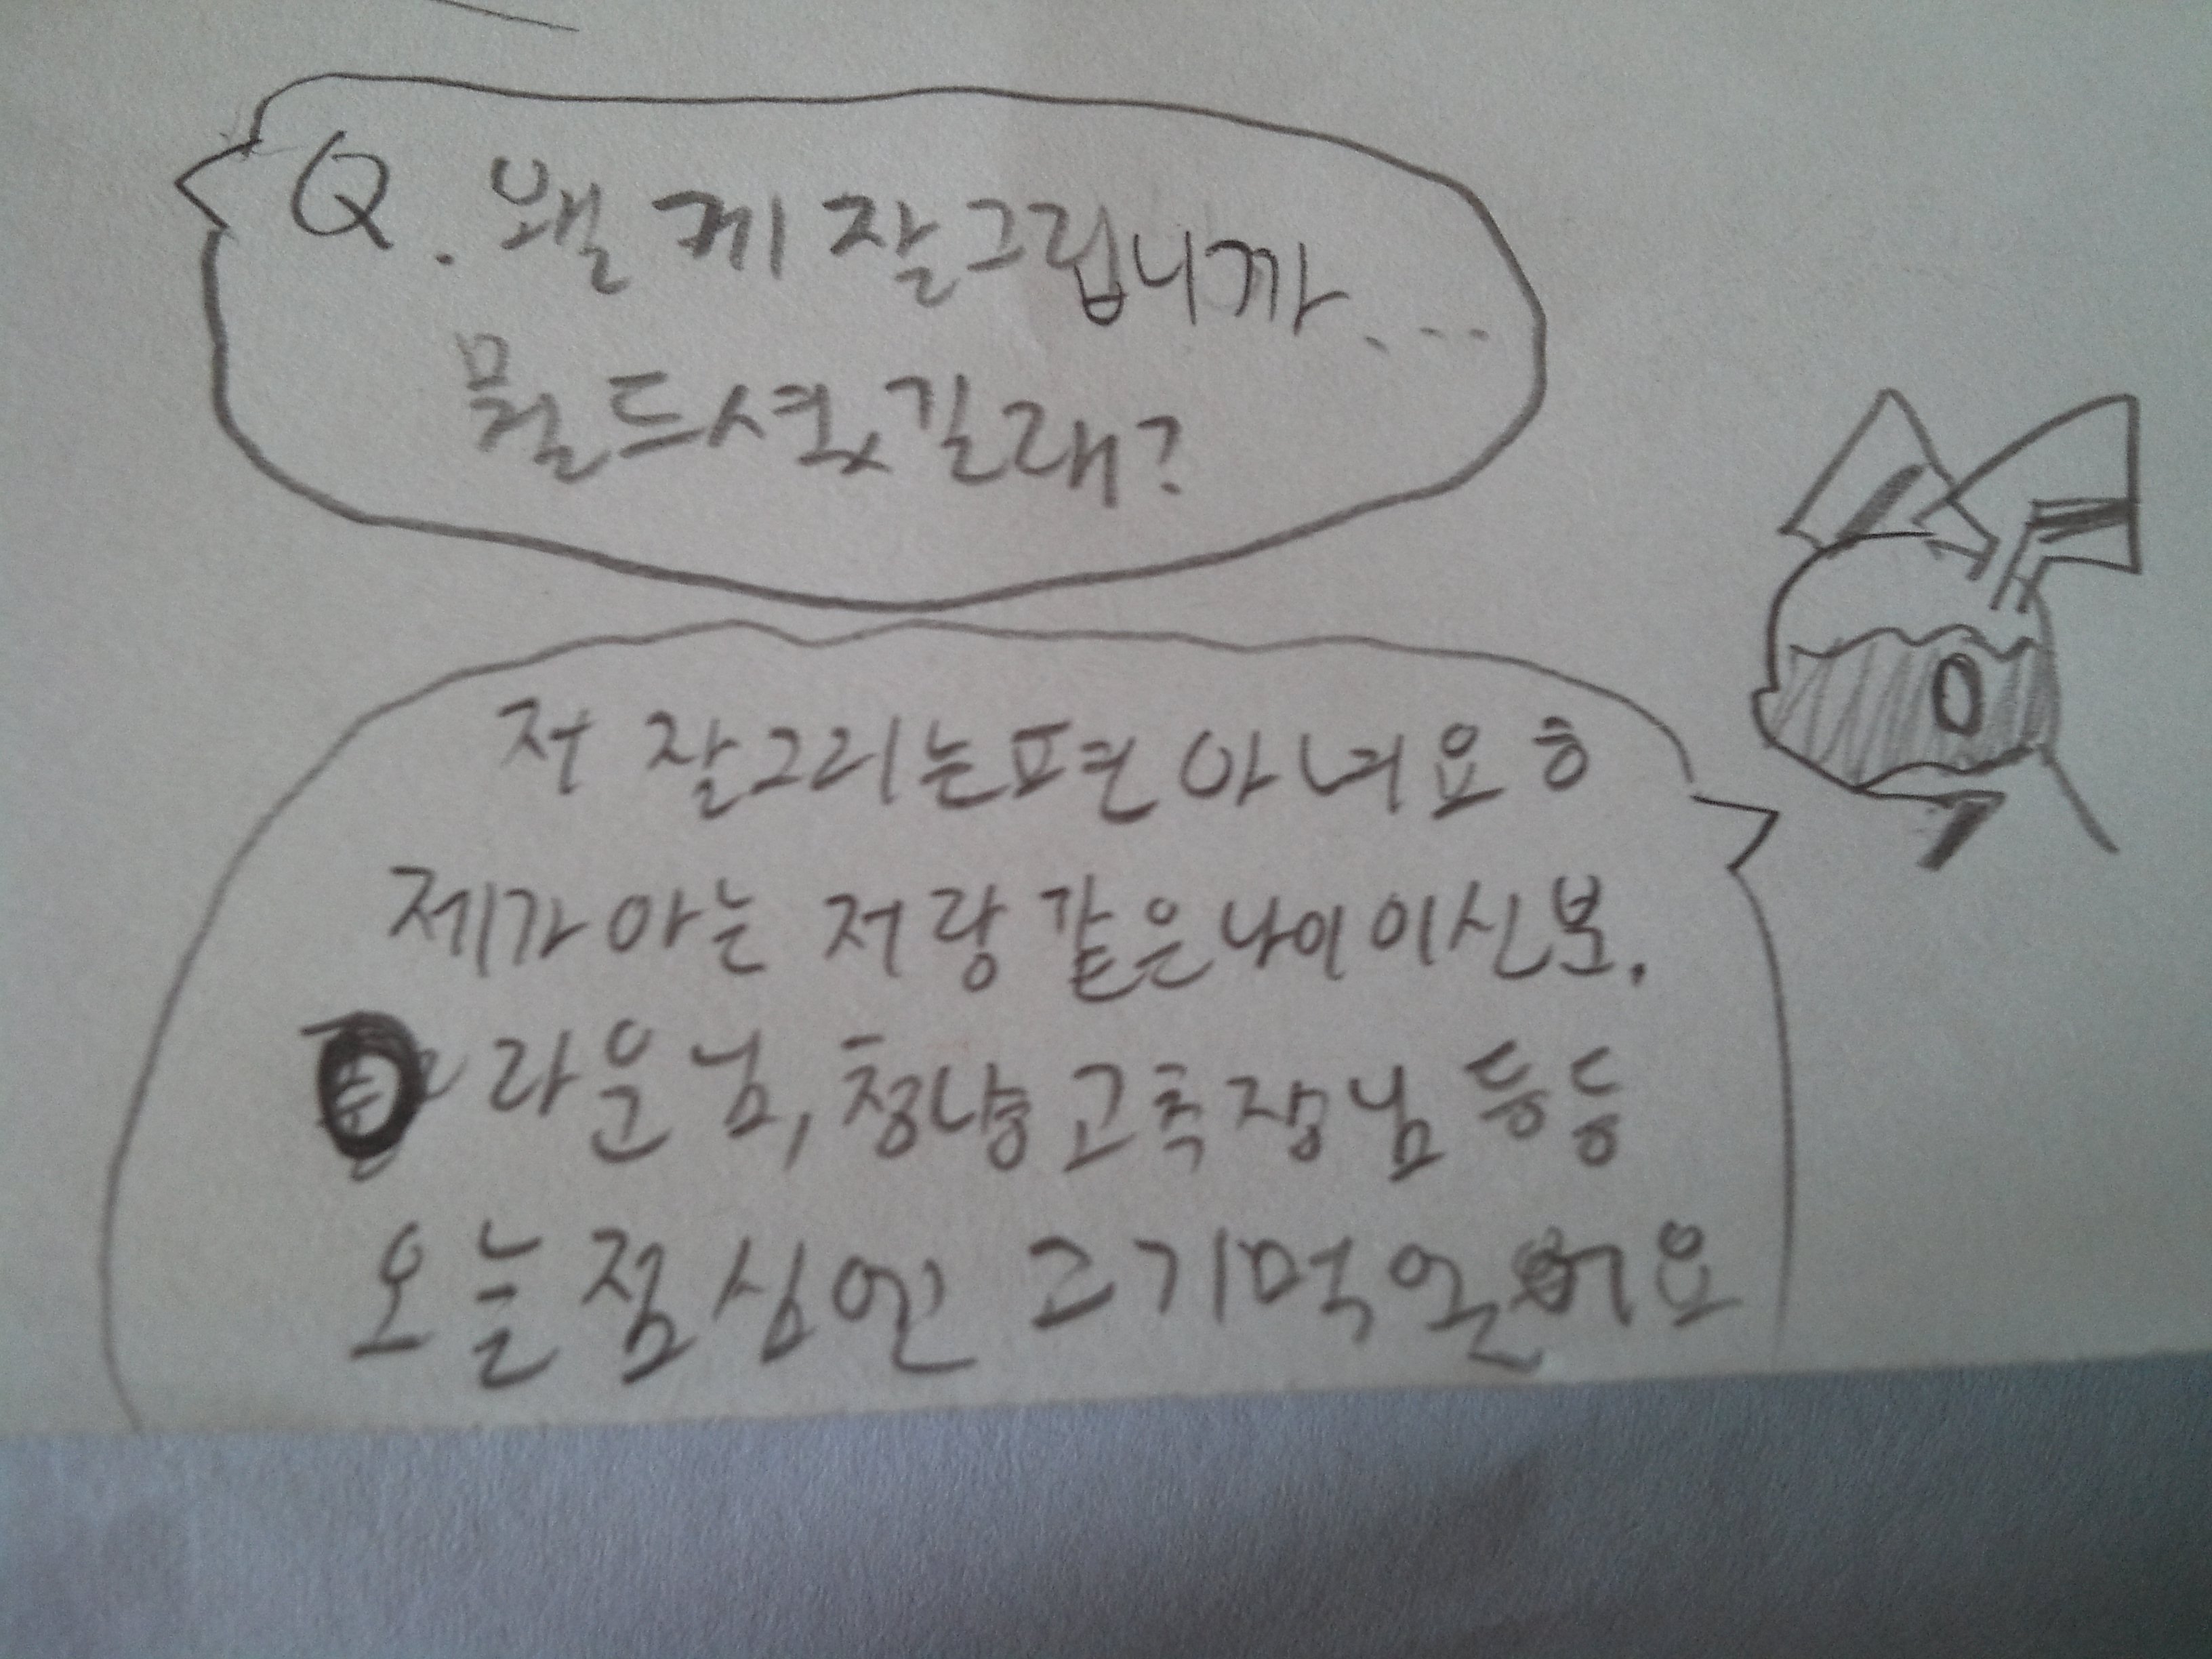 Q. 왤케 잘그립니까...
뭘드셨길래?
저 잘그리는편 아녀요ㅎ
제가아는 저랑 같은나이이신분.
라운님, 청냥고추장님 등등
오늘점심엔 고기먹을거에요